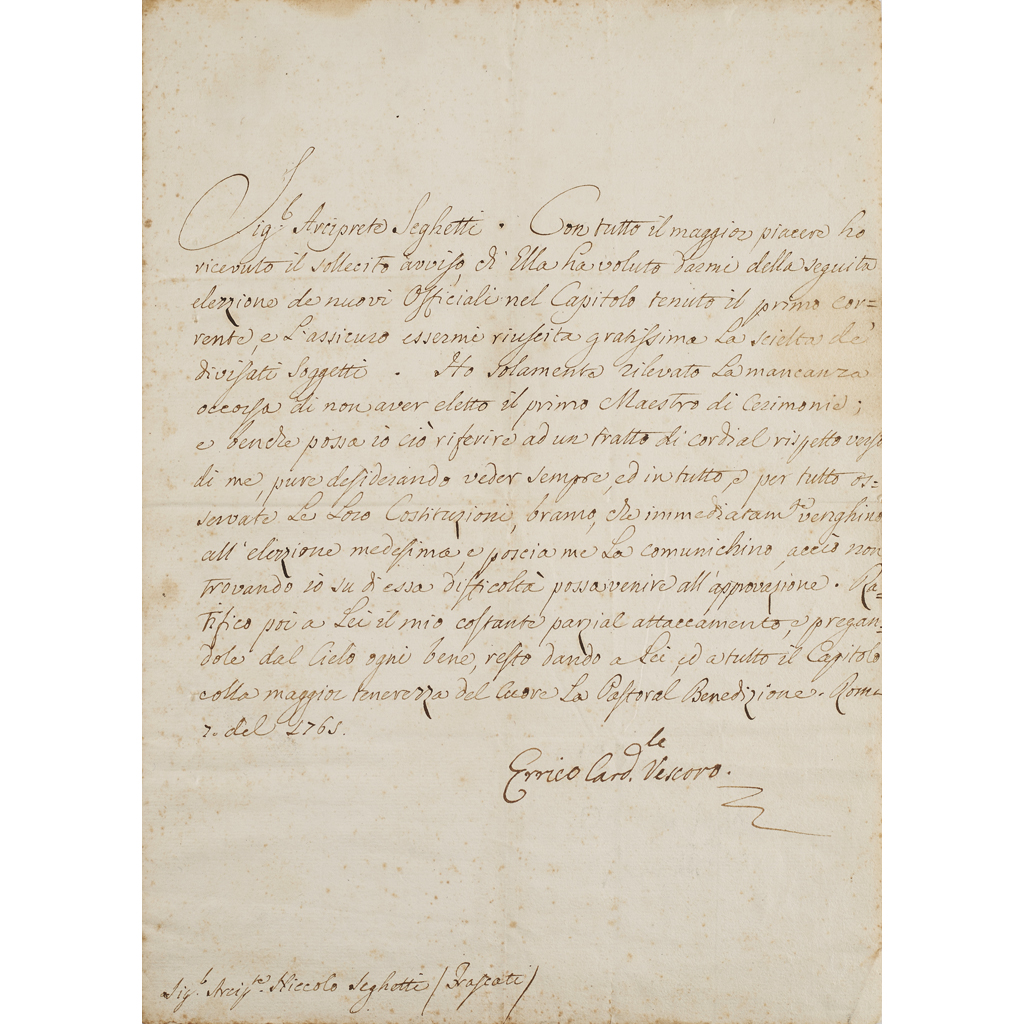 Sig.r Arciprete Seghetti. Con tutto il maggior piacere ho
ricevuto il sollecito avviso ch' Ella ha voluto darmi della seguita
elezzione de nuovi Officiali nel Capitolo tenuto il primo cor=
rente, e L'assicuro essermi riuscita gratissima La scielta de'
divisati Soggetti. Ho solamente rilevato La mancanza
occorsa di non aver eletto il primo Maestro di Cerimonie;
e benche possa io ciò riferire ad un tratto di cordial rispetto verso
di me, pure desiderando veder sempre, ed in tutto, e per tutto os=
servate Le Loro Costituzioni, bramo, che immediatam.te venghino
all' elezzione medesima, e poscia me La comunichino, acciò non
trovando io su di essa difficoltà possa venire all' approvazione. Ra=
tifico poi a Lei il mio costante parzial attaccamento, e pregan=
dole dal Cielo ogni bene, resto dando a Lei, ed a tutto il Capitolo
colla maggior tenerezza del Cuore La Pastoral Benedizione. Roma
del 1761.
Errico Card.le Vescovo.
Sig.r Arcip.te Niccolo Seghetti (Frascati)